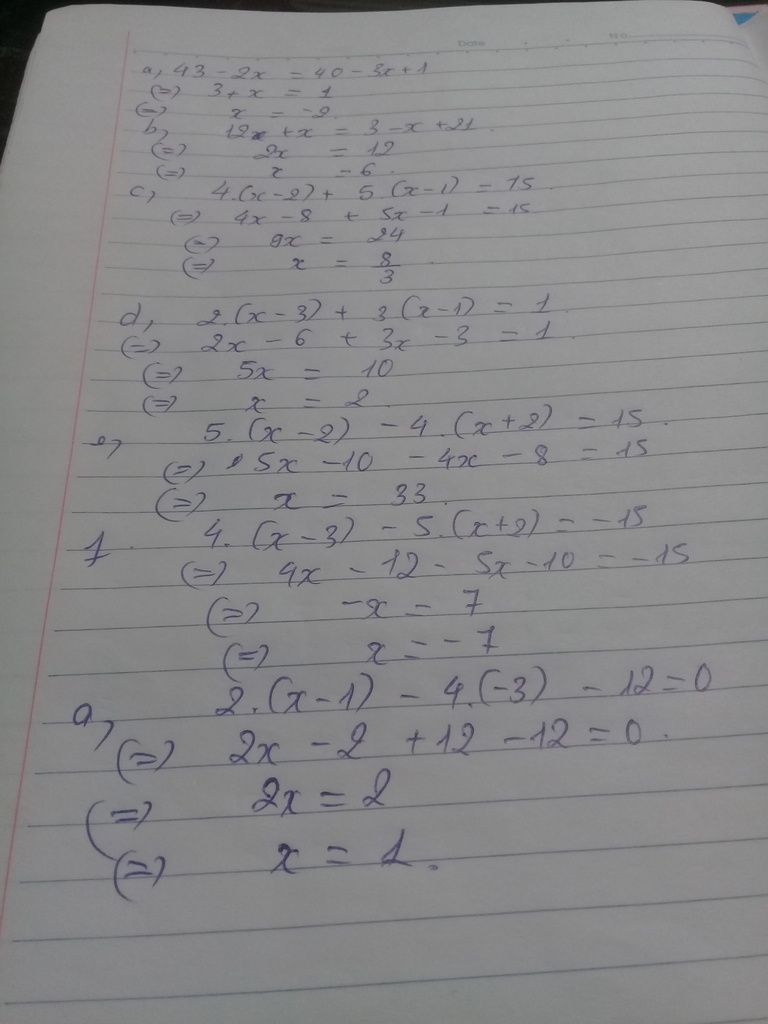 Date No
a, 43 - 2x = 40 - 3x + 1
(=) 3 + x = 1
(=) x = -2
b, 12x + x = 3 - x + 21
(=) 2x = 12
(=) x = 6
c, 4.(x-2) + 5.(x-1) = 15
(=) 4x - 8 + 5x - 1 = 15
(=) 9x = 24
(=) x = 8/3
d, 2.(x-3) + 3(x-1) = 1
(=) 2x - 6 + 3x - 3 = 1
(=) 5x = 10
(=) x = 2
e, 5.(x-2) - 4.(x+2) = 15
(=) 5x - 10 - 4x - 8 = 15
(=) x = 33
f. 4.(x-3) - 5.(x+2) = -15
(=) 4x - 12 - 5x - 10 = -15
(=) -x = 7
(=) x = -7
a, 2.(x-1) - 4.(-3) - 12 = 0
(=) 2x - 2 + 12 - 12 = 0.
(=) 2x = 2
(=) x = 1.